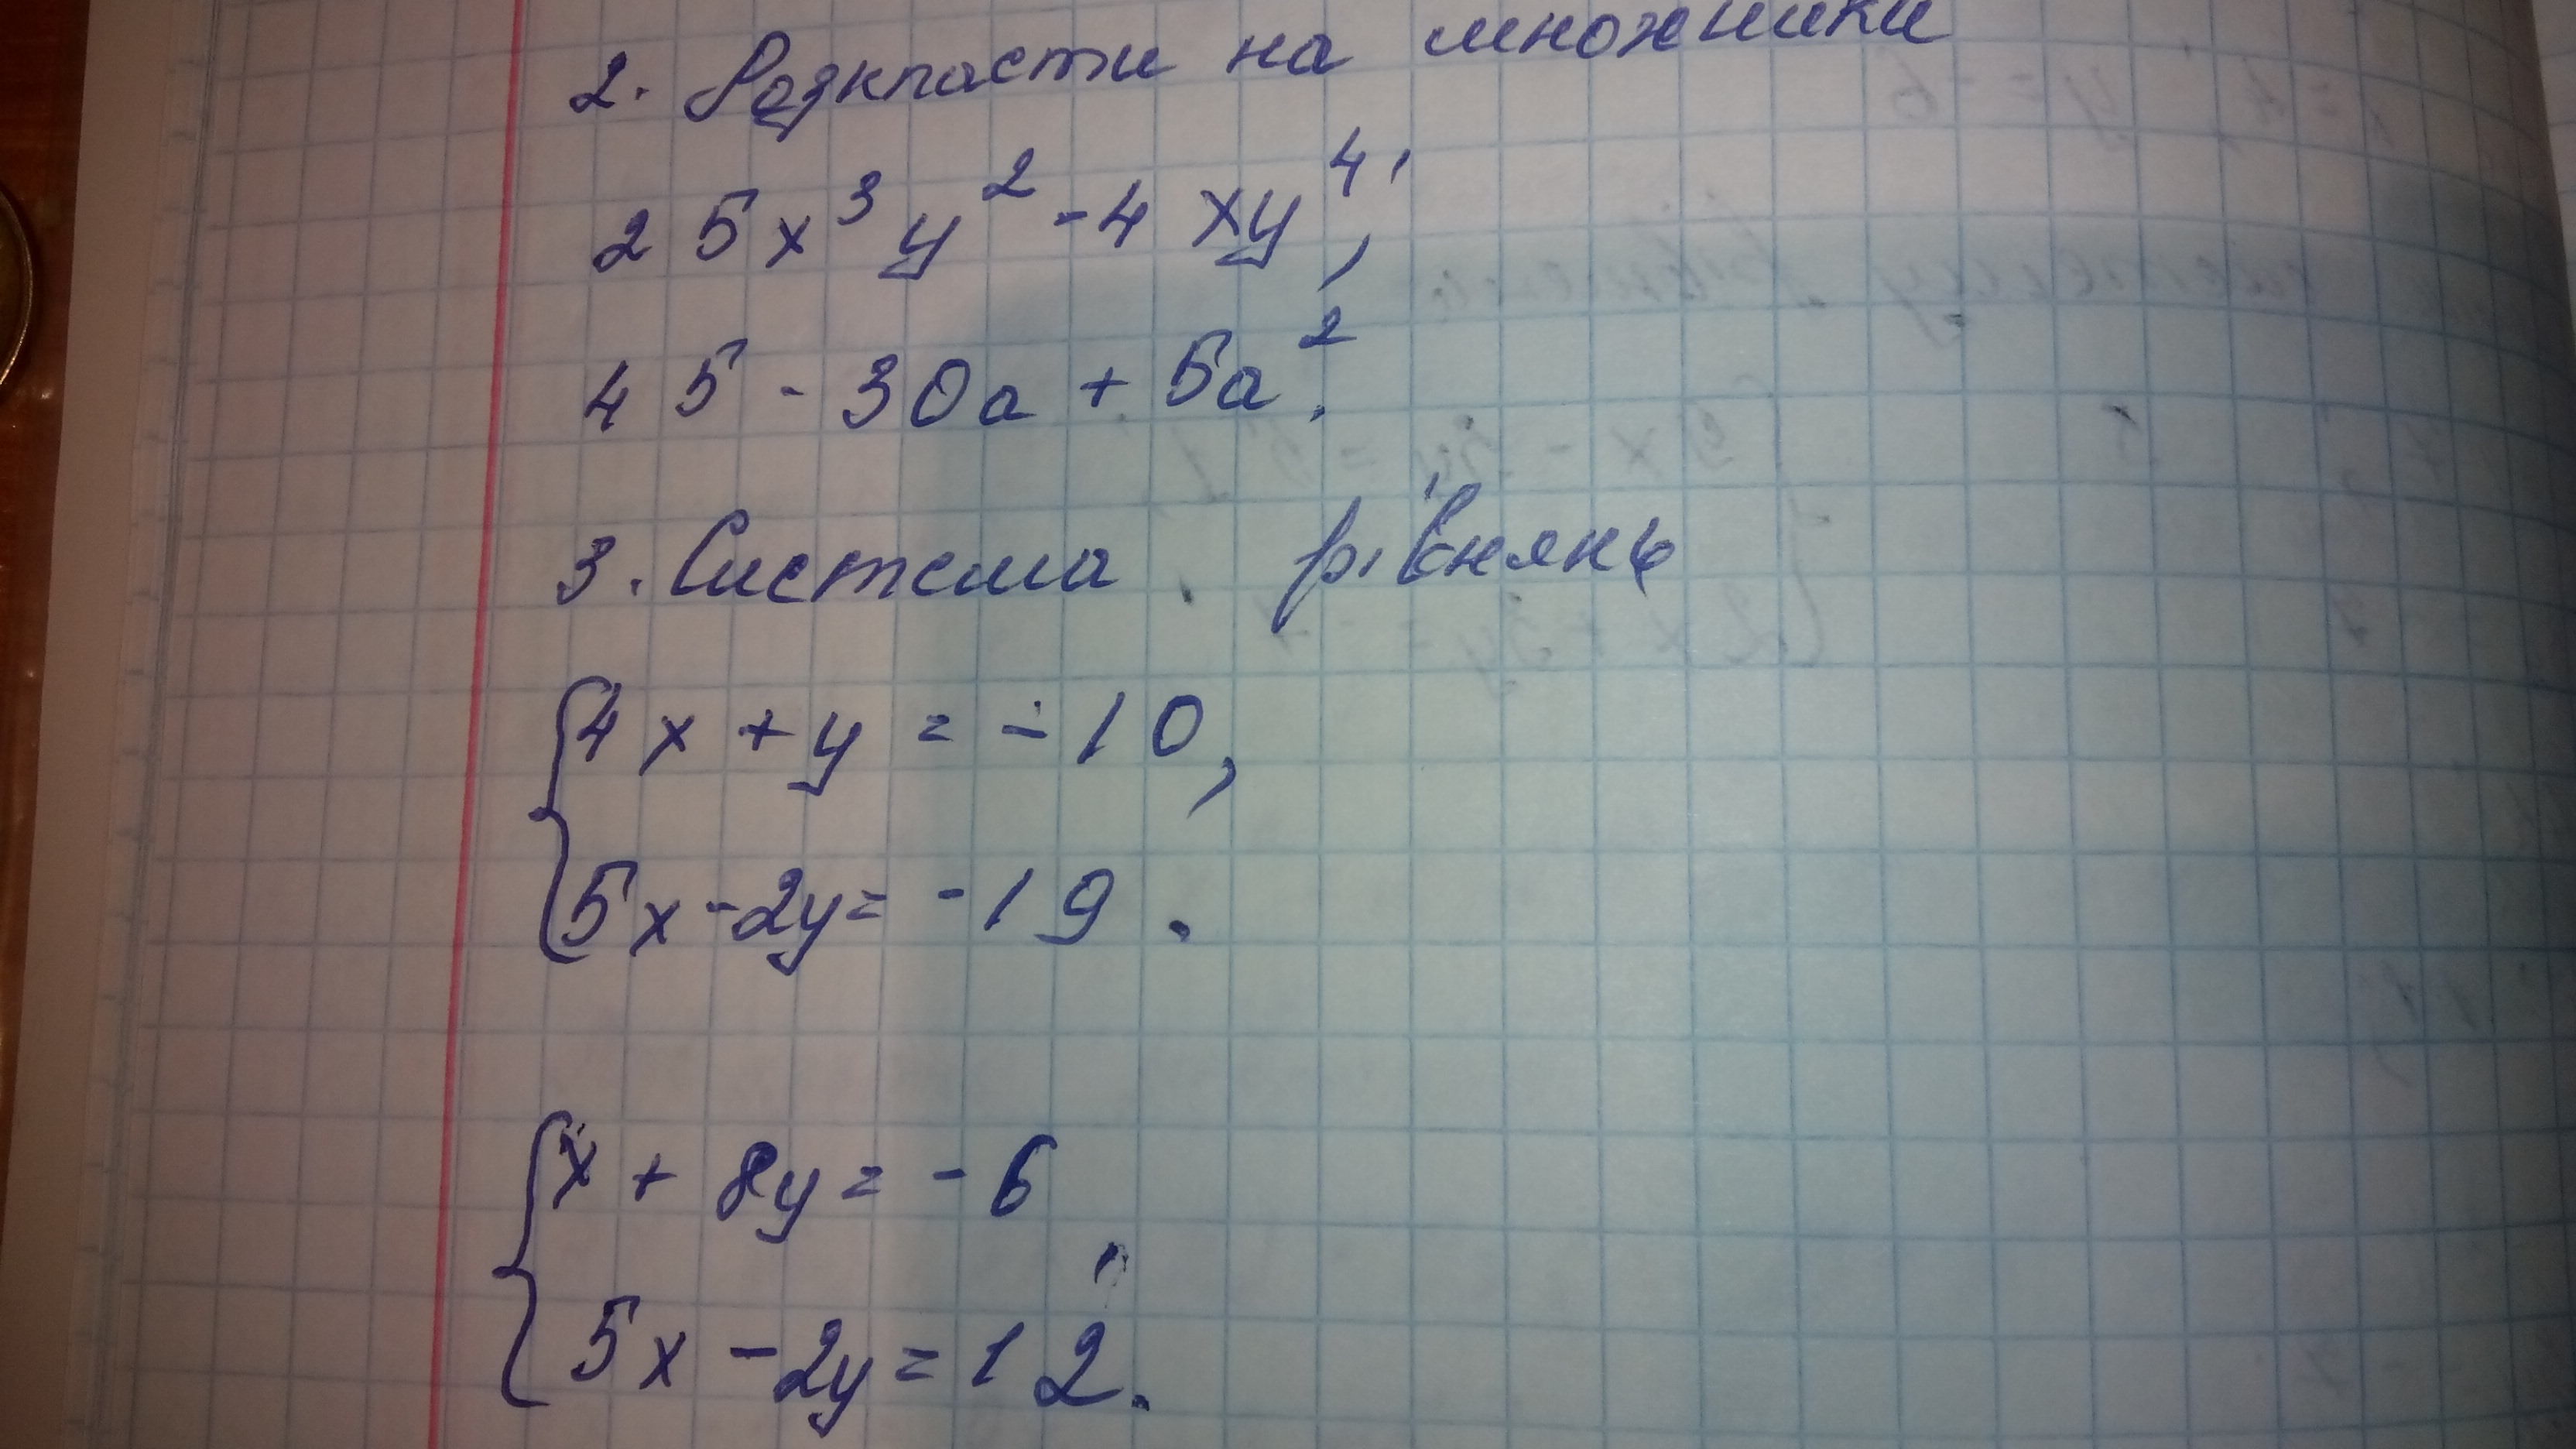 2. Розкласти на множники
25x³y² - 4xy⁴,
45 - 30a + 5a².
3. Система рівнянь
{4x + y = -10,
5x - 2y = -19.
{x + 8y = -6
5x - 2y = 12.